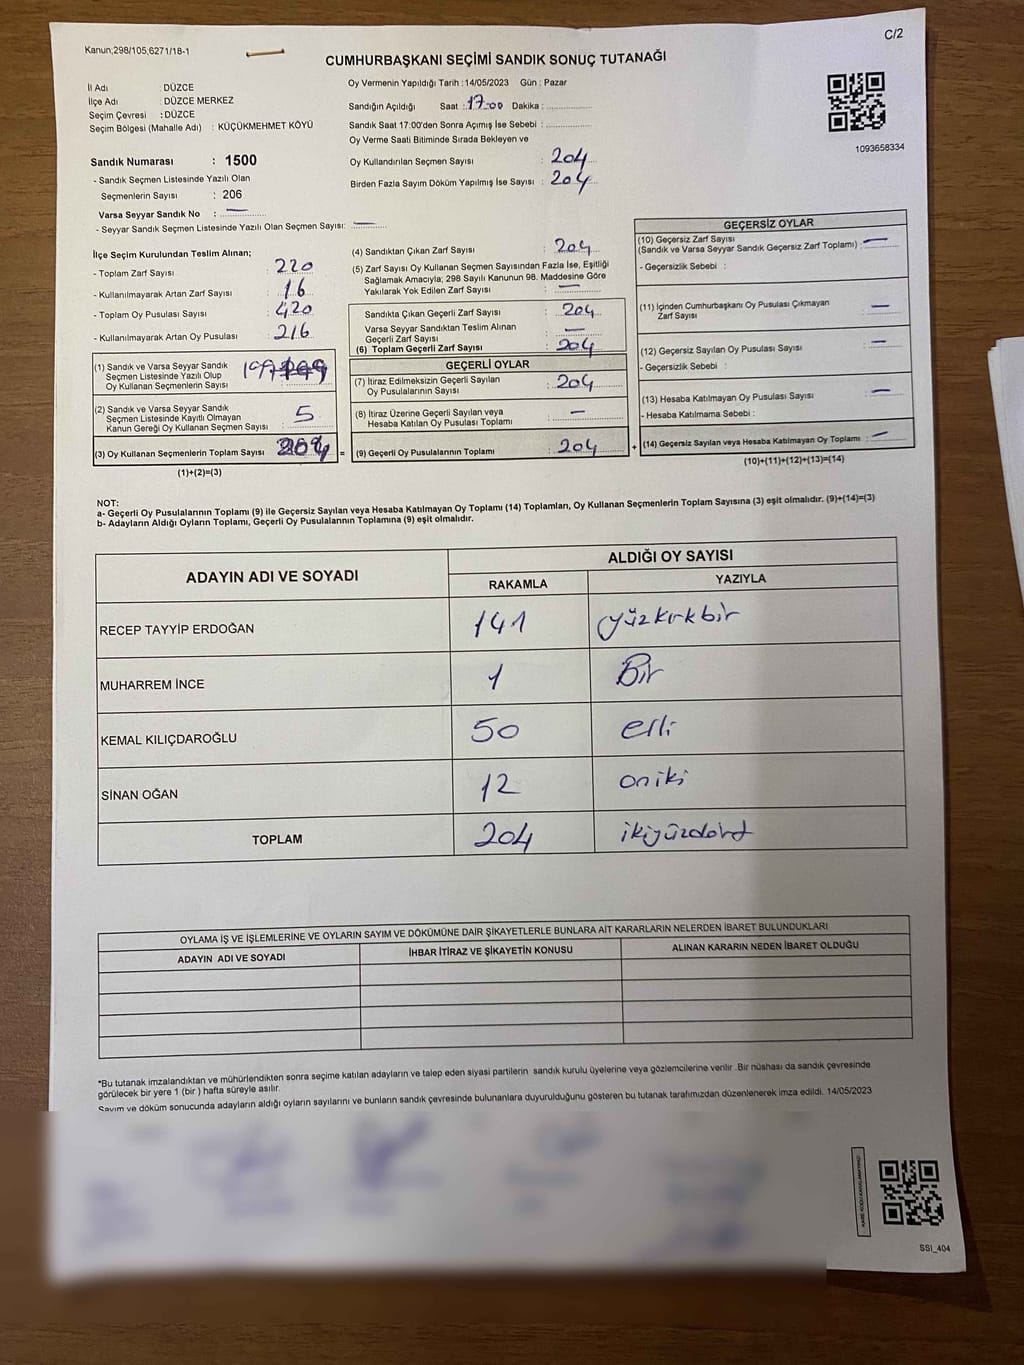 Kanun,298/105,6271/18-1
C/2
CUMHURBAŞKANI SEÇİMİ SANDIK SONUÇ TUTANAĞI
İl Adı : DÜZCE
İlçe Adı : DÜZCE MERKEZ
Seçim Çevresi : DÜZCE
Seçim Bölgesi (Mahalle Adı) : KÜÇÜKMEHMET KÖYÜ
Sandık Numarası : 1500
- Sandık Seçmen Listesinde Yazılı Olan
Seçmenlerin Sayısı : 206
Varsa Seyyar Sandık No : —
- Seyyar Sandık Seçmen Listesinde Yazılı Olan Seçmen Sayısı: —
Oy Vermenin Yapıldığı Tarih :14/05/2023 Gün : Pazar
Sandığın Açıldığı Saat : 17:00 Dakika :
Sandık Saat 17:00'den Sonra Açımış İse Sebebi :
Oy Verme Saati Bitiminde Sırada Bekleyen ve
Oy Kullandırılan Seçmen Sayısı : 204
Birden Fazla Sayım Döküm Yapılmış İse Sayısı : 204
1093658334
İlçe Seçim Kurulundan Teslim Alınan;
- Toplam Zarf Sayısı : 220
- Kullanılmayarak Artan Zarf Sayısı : 16
- Toplam Oy Pusulası Sayısı : 420
- Kullanılmayarak Artan Oy Pusulası : 216
(1) Sandık ve Varsa Seyyar Sandık
Seçmen Listesinde Yazılı Olup
Oy Kullanan Seçmenlerin Sayısı : 199
(2) Sandık ve Varsa Seyyar Sandık
Seçmen Listesinde Kayıtlı Olmayan
Kanun Gereği Oy Kullanan Seçmen Sayısı : 5
(3) Oy Kullanan Seçmenlerin Toplam Sayısı : 204 =
(1)+(2)=(3)
(4) Sandıktan Çıkan Zarf Sayısı : 204
(5) Zarf Sayısı Oy Kullanan Seçmen Sayısından Fazla İse, Eşitliği
Sağlamak Amacıyla; 298 Sayılı Kanunun 98. Maddesine Göre
Yakılarak Yok Edilen Zarf Sayısı : —
Sandıkta Çıkan Geçerli Zarf Sayısı : 204
Varsa Seyyar Sandıktan Teslim Alınan
Geçerli Zarf Sayısı : —
(6) Toplam Geçerli Zarf Sayısı : 204
GEÇERLİ OYLAR
(7) İtiraz Edilmeksizin Geçerli Sayılan
Oy Pusulalarının Sayısı : 204
(8) İtiraz Üzerine Geçerli Sayılan veya
Hesaba Katılan Oy Pusulası Toplamı : —
(9) Geçerli Oy Pusulalarının Toplamı : 204 +
GEÇERSİZ OYLAR
(10) Geçersiz Zarf Sayısı
(Sandık ve Varsa Seyyar Sandık Geçersiz Zarf Toplamı) : —
- Geçersizlik Sebebi :
(11) İçinden Cumhurbaşkanı Oy Pusulası Çıkmayan
Zarf Sayısı : —
(12) Geçersiz Sayılan Oy Pusulası Sayısı : —
- Geçersizlik Sebebi :
(13) Hesaba Katılmayan Oy Pusulası Sayısı : —
- Hesaba Katılmama Sebebi :
(14) Geçersiz Sayılan veya Hesaba Katılmayan Oy Toplamı : —
(10)+(11)+(12)+(13)=(14)
NOT:
a- Geçerli Oy Pusulalarının Toplamı (9) ile Geçersiz Sayılan veya Hesaba Katılmayan Oy Toplamı (14) Toplamları, Oy Kullanan Seçmenlerin Toplam Sayısına (3) eşit olmalıdır. (9)+(14)=(3)
b- Adayların Aldığı Oyların Toplamı, Geçerli Oy Pusulalarının Toplamına (9) eşit olmalıdır.
ADAYIN ADI VE SOYADI
ALDIĞI OY SAYISI
RAKAMLA YAZIYLA
RECEP TAYYİP ERDOĞAN 141 yüzkırkbir
MUHARREM İNCE 1 Bir
KEMAL KILIÇDAROĞLU 50 elli
SİNAN OĞAN 12 oniki
TOPLAM 204 ikiyüzdört
OYLAMA İŞ VE İŞLEMLERİNE VE OYLARIN SAYIM VE DÖKÜMÜNE DAİR ŞİKAYETLERLE BUNLARA AİT KARARLARIN NELERDEN İBARET BULUNDUKLARI
ADAYIN ADI VE SOYADI İHBAR İTİRAZ VE ŞİKAYETİN KONUSU ALINAN KARARIN NEDEN İBARET OLDUĞU
*Bu tutanak imzalandıktan ve mühürlendikten sonra seçime katılan adayların ve talep eden siyasi partilerin sandık kurulu üyelerine veya gözlemcilerine verilir .Bir nüshası da sandık çevresinde
görülecek bir yere 1 (bir ) hafta süreyle asılır.
Sayım ve döküm sonucunda adayların aldığı oyların sayılarını ve bunların sandık çevresinde bulunanlara duyurulduğunu gösteren bu tutanak tarafımızdan düzenlenerek imza edildi. 14/05/2023
SSI_404